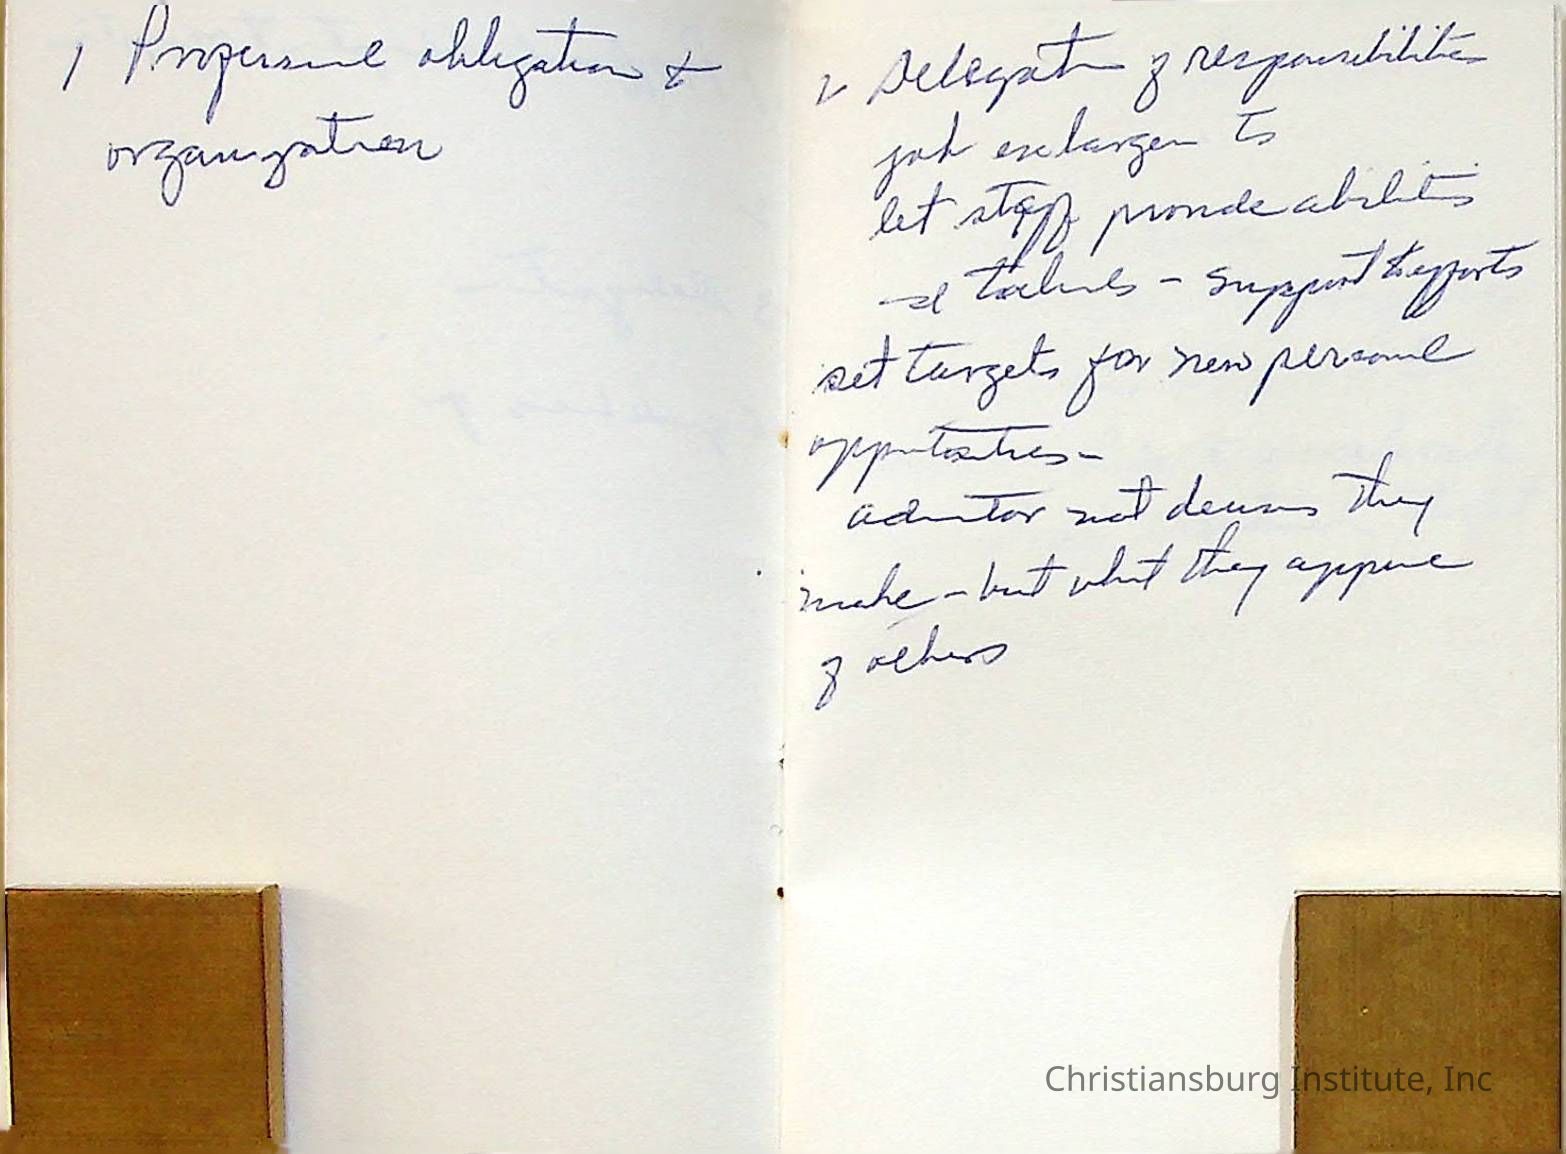 1 Professional obligation &
organization
2 Delegation of responsibilities
job enlargen to
let staff provide abilities
talents - support & efforts
set targets for new personnel
opportunities -
admntor not decisions they
make - but what they approve
of others
Christiansburg Institute, Inc